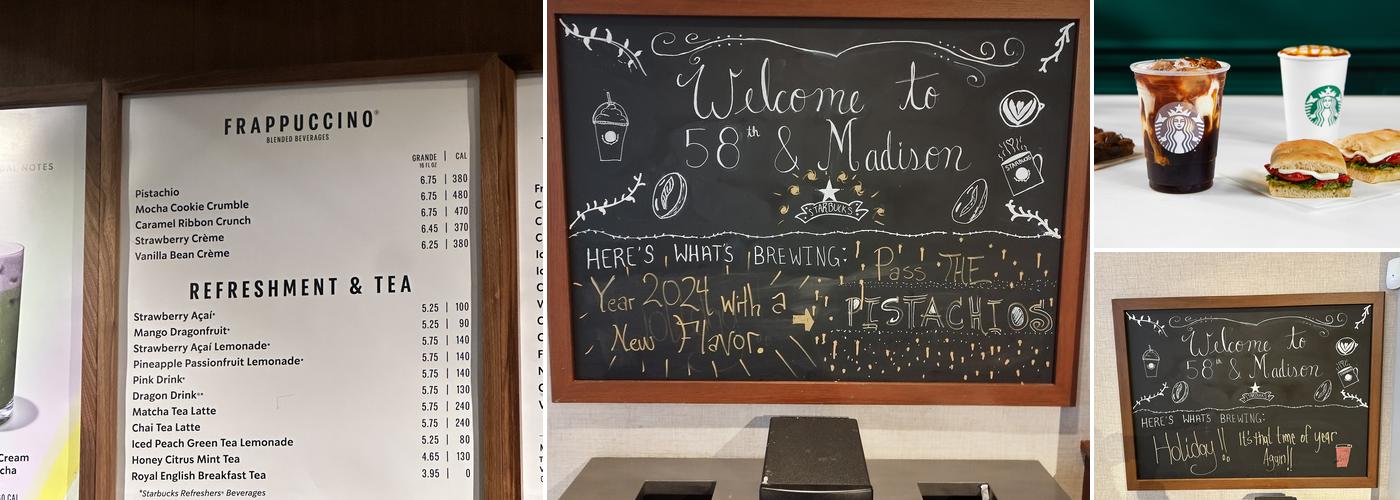 DAL NOTES
Cream
cha
FRAPPUCCINO®
BLENDED BEVERAGES
GRANDE | CAL
16 FL OZ
Pistachio 6.75 | 380
Mocha Cookie Crumble 6.75 | 480
Caramel Ribbon Crunch 6.75 | 470
Strawberry Crème 6.45 | 370
Vanilla Bean Crème 6.25 | 380
REFRESHMENT & TEA
Strawberry Açaí* 5.25 | 100
Mango Dragonfruit* 5.25 | 90
Strawberry Açaí Lemonade* 5.75 | 140
Pineapple Passionfruit Lemonade* 5.75 | 140
Pink Drink* 5.75 | 140
Dragon Drink®* 5.75 | 130
Matcha Tea Latte 5.75 | 240
Chai Tea Latte 5.75 | 240
Iced Peach Green Tea Lemonade 5.25 | 80
Honey Citrus Mint Tea 4.65 | 130
Royal English Breakfast Tea 3.95 | 0
*Starbucks Refreshers® Beverages
Welcome to
58th & Madison
STARBUCKS
STARBUCKS
HERE'S WHAT'S BREWING:
Year 2024 with a
New Flavor.
Pass THE
PISTACHIOS
Welcome to
58th & Madison
STARBUCKS
HERE'S WHAT'S BREWING:
Holiday!! It's that time of year
Again!!